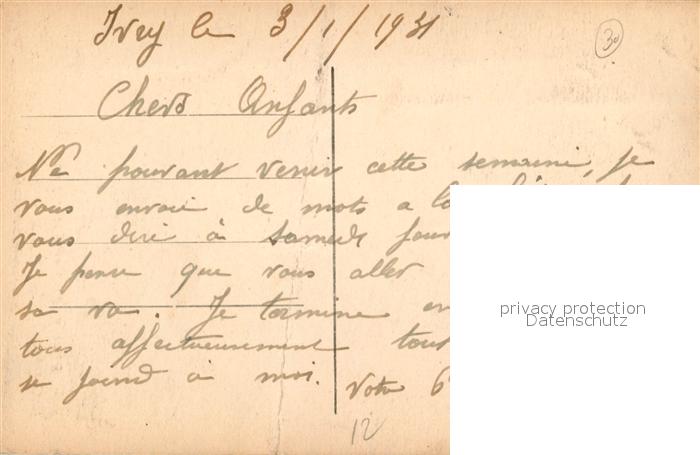 Ivry le 3/1/1931
30
Chers Enfants
Ne pouvant venir cette semaine, je
vous envoie de mots a la
vous dire à samedi
Je pense que vous aller
sa va. Je termine en
tous affectueusement tout
se joind à moi. Votre
12
privacy protection
Datenschutz